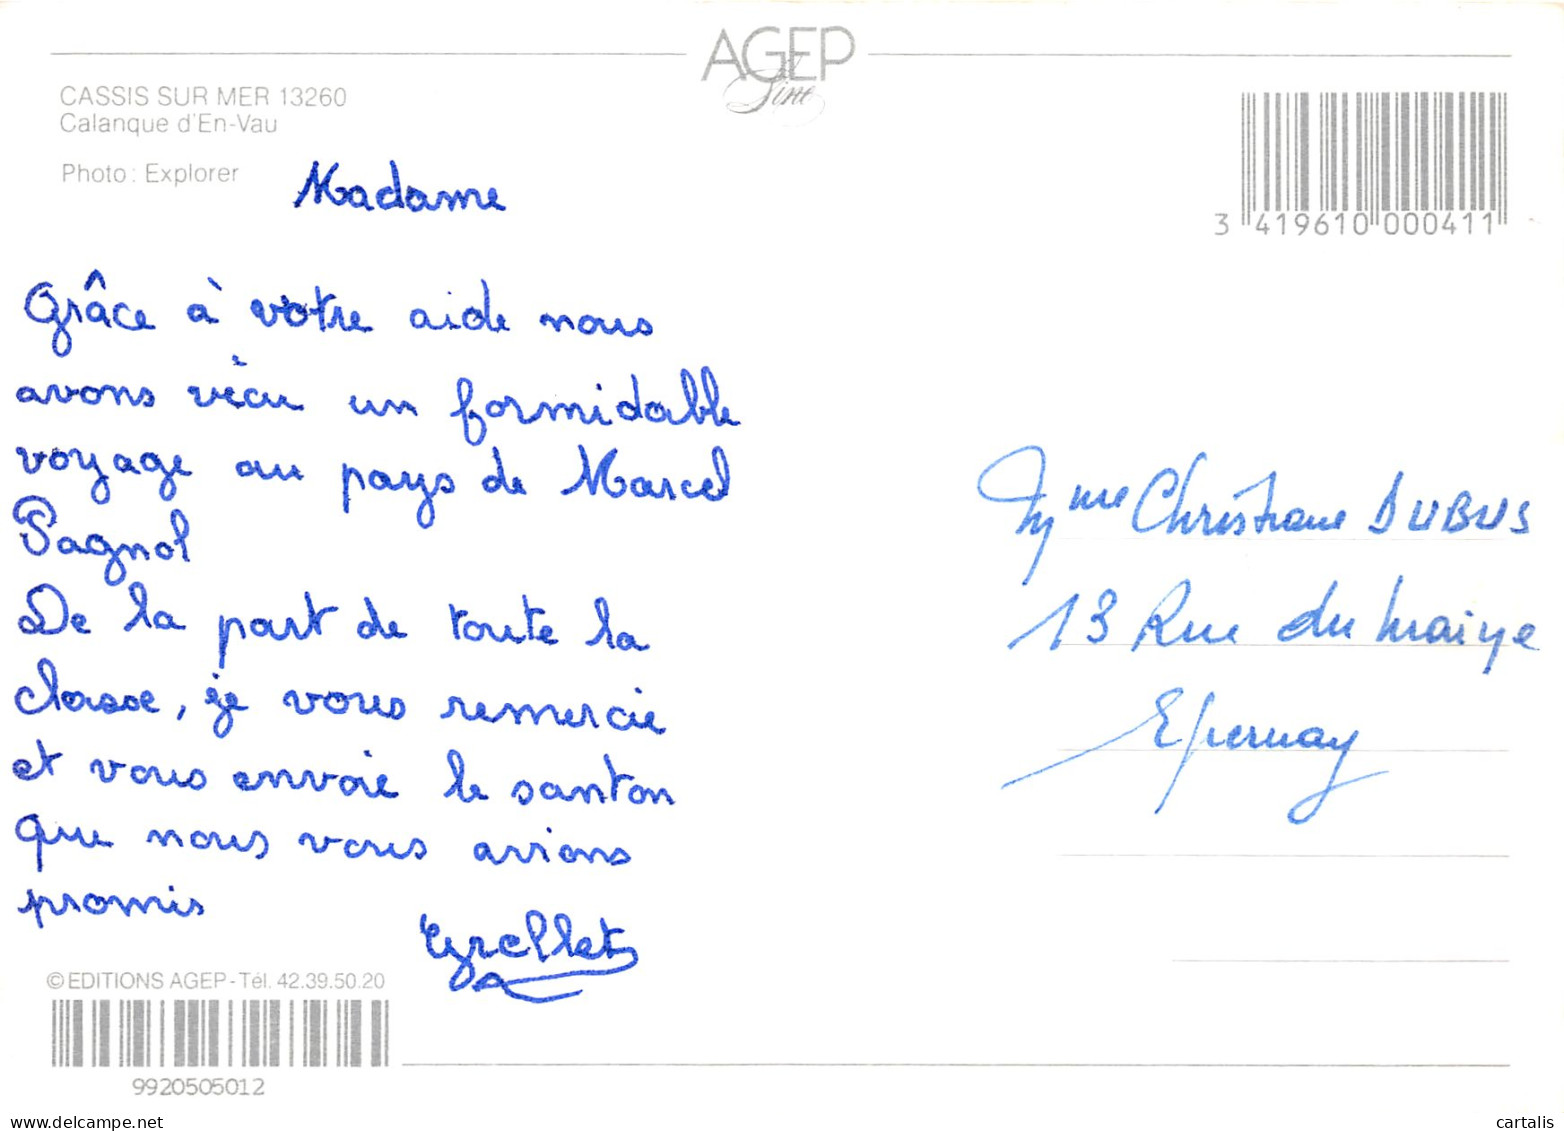 AGEP
Line
CASSIS SUR MER 13260
Calanque d'En-Vau
Photo : Explorer
3 419610 000411
Madame
Grâce à votre aide nous
avons vécu un formidable
voyage au pays de Marcel
Pagnol
De la part de toute la
classe, je vous remercie
et vous envoie le santon
que nous vous avions
promis
Mme Christiane DUBUS
13 Rue du
Epernay
© EDITIONS AGEP - Tél. 42.39.50.20
9920505012
www.delcampe.net
cartalis